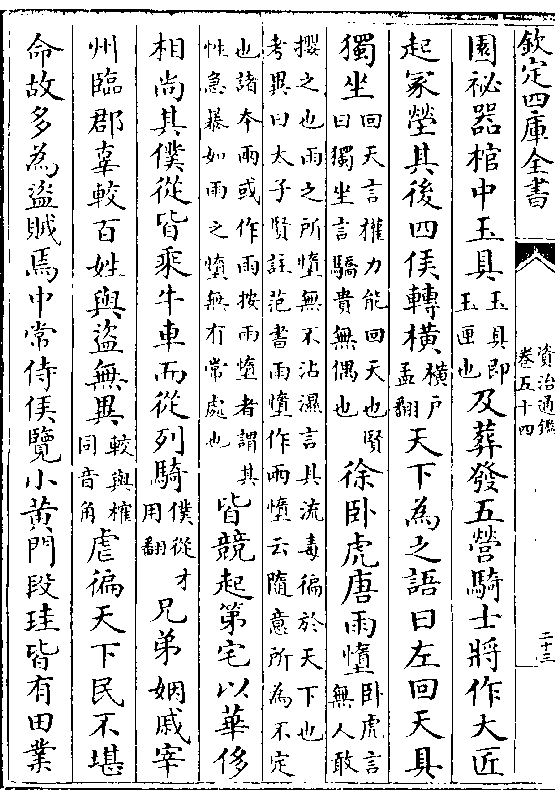 欽定四庫全書
資治通鑑
卷五十四
二十三
園祕器棺中玉具玉具即玉匣也及葬發五營騎士將作大匠
起冢塋其後四侯轉橫橫戶孟翻天下為之語曰左回天具
獨坐回天言權力能回天也賢曰獨坐言驕貴無偶也徐卧虎唐雨墮卧虎言無人敢
攖之也雨之所墮無不沾濕言其流毒徧於天下也考異曰太子賢註范書雨墮作兩墮云隨意所為不定
也諸本兩或作雨按雨墮者謂其性急暴如雨之墮無有常處也皆競起第宅以華侈
相尚其僕從皆乘牛車而從列騎僕從才用翻兄弟姻戚宰
州臨郡辜較百姓與盜無異較與榷同音角虐徧天下民不堪
命故多為盜賊焉中常侍侯覽小黃門段珪皆有田業